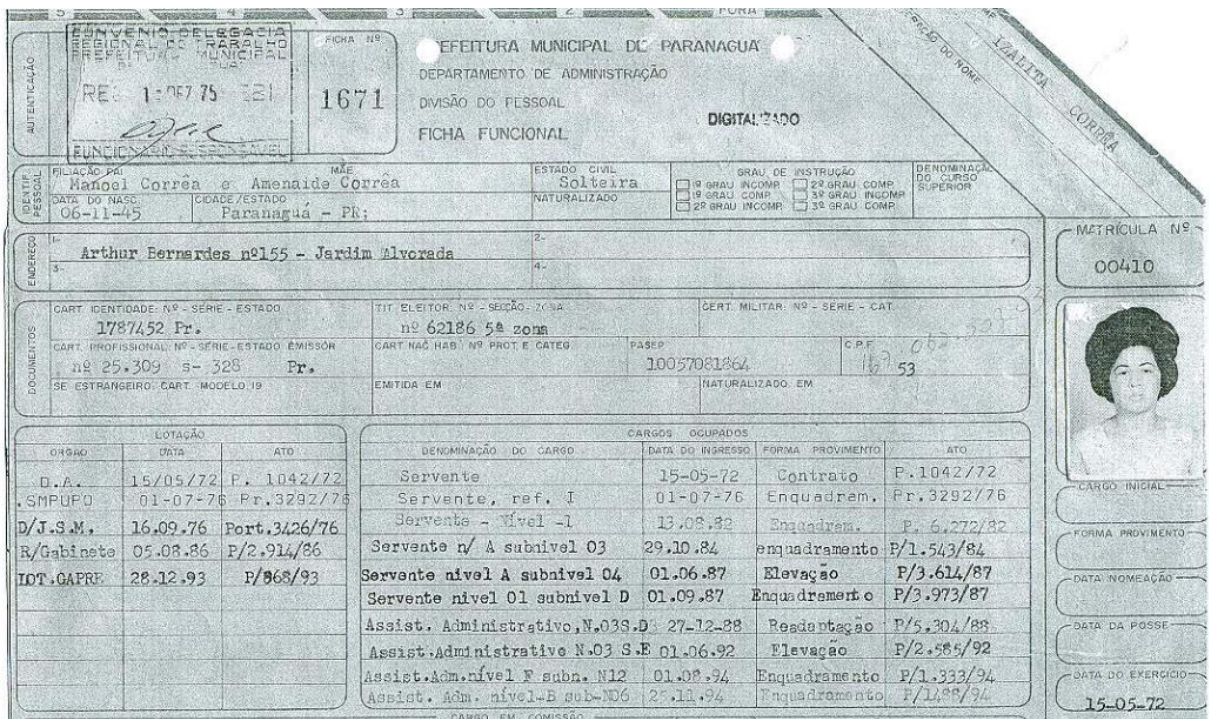 5 4 3 2 FORA
CONVENIO DELEGACIA
REGIONAL DO TRABALHO
PREFEITURA MUNICIPAL
FUNCIONARIO RESPONSAVEL
AUTENTICAÇÃO
FICHA Nº
1671
EFEITURA MUNICIPAL DE PARANAGUA
DEPARTAMENTO DE ADMINISTRAÇÃO
DIVISÃO DO PESSOAL
FICHA FUNCIONAL
DIGITALIZADO
DO NOME
IZALITA CORRÊA
IDENTIF. PESSOAL
FILIAÇÃO PAI MÃE ESTADO CIVIL GRAU DE INSTRUÇÃO DENOMINAÇÃO DO CURSO SUPERIOR
Manoel Corrêa e Amenaide Corrêa Solteira
1º GRAU INCOMP. 2º GRAU COMP.
1º GRAU COMP. 3º GRAU INCOMP.
2º GRAU INCOMP. 3º GRAU COMP.
DATA DO NASC. CIDADE/ESTADO NATURALIZADO
06-11-45 Paranaguá - PR;
MATRICULA Nº
00410
ENDEREÇO
1- 2-
Arthur Bernardes nº155 - Jardim Alvorada
3- 4-
DOCUMENTOS
CART. IDENTIDADE: Nº - SERIE - ESTADO TIT. ELEITOR: Nº - SECÇÃO - ZONA CERT. MILITAR: Nº - SERIE - CAT.
1787452 Pr. nº 62186 5ª zona
CART. PROFISSIONAL: Nº - SERIE - ESTADO EMISSOR CART NAC HAB. Nº PROT. E CATEG. PASEP C.P.F.
nº 25.309 s- 328 Pr. 10057081864 53
SE ESTRANGEIRO: CART. MODELO 19 EMITIDA EM NATURALIZADO EM
LOTAÇÃO
ORGÃO DATA ATO
D.A. 15/05/72 P. 1042/72
.SMPUPO 01-07-76 Pr.3292/76
D/J.S.M. 16.09.76 Port.3426/76
R/Gabinete 05.08.86 P/2.914/86
IOT.GAPRE 28.12.93 P/868/93
CARGOS OCUPADOS
DENOMINAÇÃO DO CARGO DATA DO INGRESSO FORMA PROVIMENTO ATO
Servente 15-05-72 Contrato P.1042/72
Servente, ref. I 01-07-76 Enquadram. Pr.3292/76
Servente - Nível -1 13.08.82 Enquadram. P. 6.272/82
Servente n/ A subnivel 03 29.10.84 enquadramento P/1.543/84
Servente nivel A subnivel 04 01.06.87 Elevação P/3.614/87
Servente nivel 01 subnivel D 01.09.87 Enquadramento P/3.973/87
Assist. Administrativo,N.03S.D 27-12-88 Readaptação P/5.304/88
Assist.Administrativo N.03 S.E 01.06.92 Elevação P/2.585/92
Assist.Adm.nível F subn. N12 01.08.94 Enquadramento P/1.333/94
Assist. Adm. nivel-B sub-N06 25.11.94 Enquadramento P/1488/94
CARGO EM COMISSÃO
CARGO INICIAL
FORMA PROVIMENTO
DATA NOMEAÇÃO
DATA DA POSSE
DATA DO EXERCICIO
15-05-72